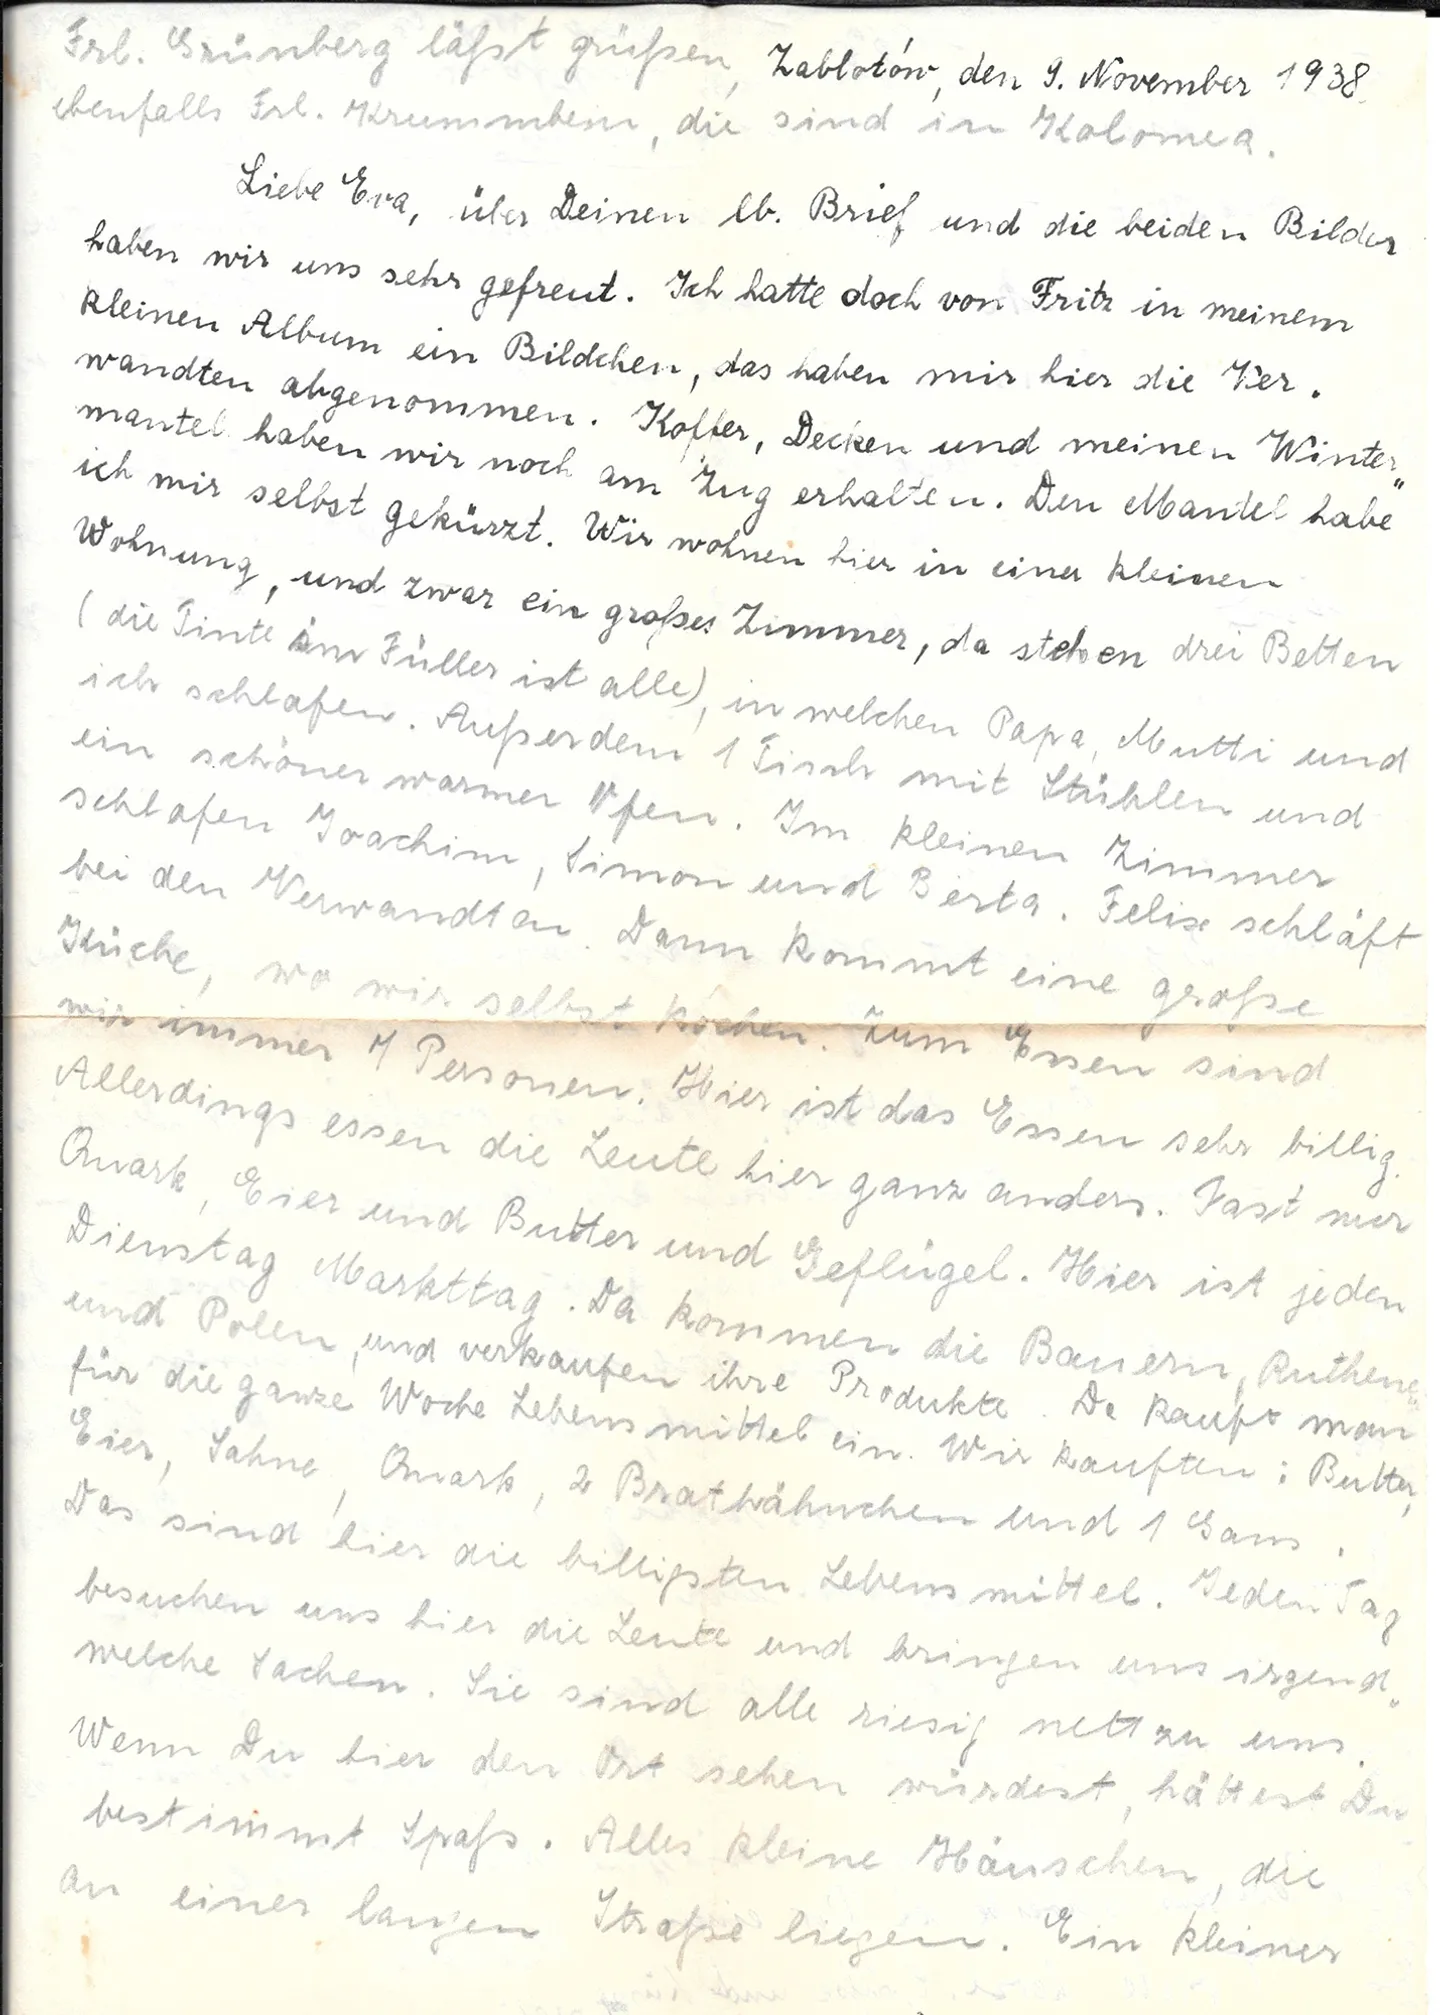 Frl. Grünberg läßt grüßen,
Zablotów, den 9. November 1938.
ebenfalls Frl. Krummbein, die sind in Kolomea.
Liebe Eva, über Deinen lb. Brief und die beiden Bilder
haben wir uns sehr gefreut. Ich hatte doch von Fritz in meinem
kleinen Album ein Bildchen, das haben mir hier die Ver-
wandten abgenommen. Koffer, Decken und meinen Winter„
mantel haben wir noch am Zug erhalten. Den Mantel habe"
ich mir selbst gekürzt. Wir wohnen hier in einer kleinen
Wohnung, und zwar ein großes Zimmer, da stehen drei Betten
(die Tinte im Füller ist alle), in welchen Papa, Mutti und
ich schlafen. Außerdem 1 Tisch mit Stühlen und
ein schöner warmer Ofen. Im kleinen Zimmer
schlafen Joachim, Simon und Berta. Felix schläft
bei den Verwandten. Dann kommt eine große
Küche, wo wir selbst kochen. Zum Essen sind
wir immer 7 Personen. Hier ist das Essen sehr billig.
Allerdings essen die Leute hier ganz anders. Fast nur
Quark, Eier und Butter und Geflügel. Hier ist jeden
Dienstag Markttag. Da kommen die Bauern, Ruthenen
und Polen, und verkaufen ihre Produkte. Da kauft man
für die ganze Woche Lebensmittel ein. Wir kauften: Butter,
Eier, Sahne, Quark, 2 Brathähnchen und 1 Gans.
Das sind hier die billigsten Lebensmittel. Jeden Tag
besuchen uns hier die Leute und bringen uns irgend„
welche Sachen. Sie sind alle riesig nett zu uns.
Wenn Du hier den Ort sehen würdest, hättest Du
bestimmt Spaß. Alles kleine Häuschen, die
an einer langen Straße liegen. Ein kleiner